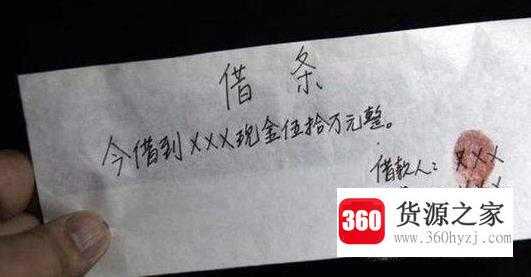 借条
今借到XXX现金伍拾万元整。
借款人：XXX
XX
360 货源之家
www.360hyzj.com